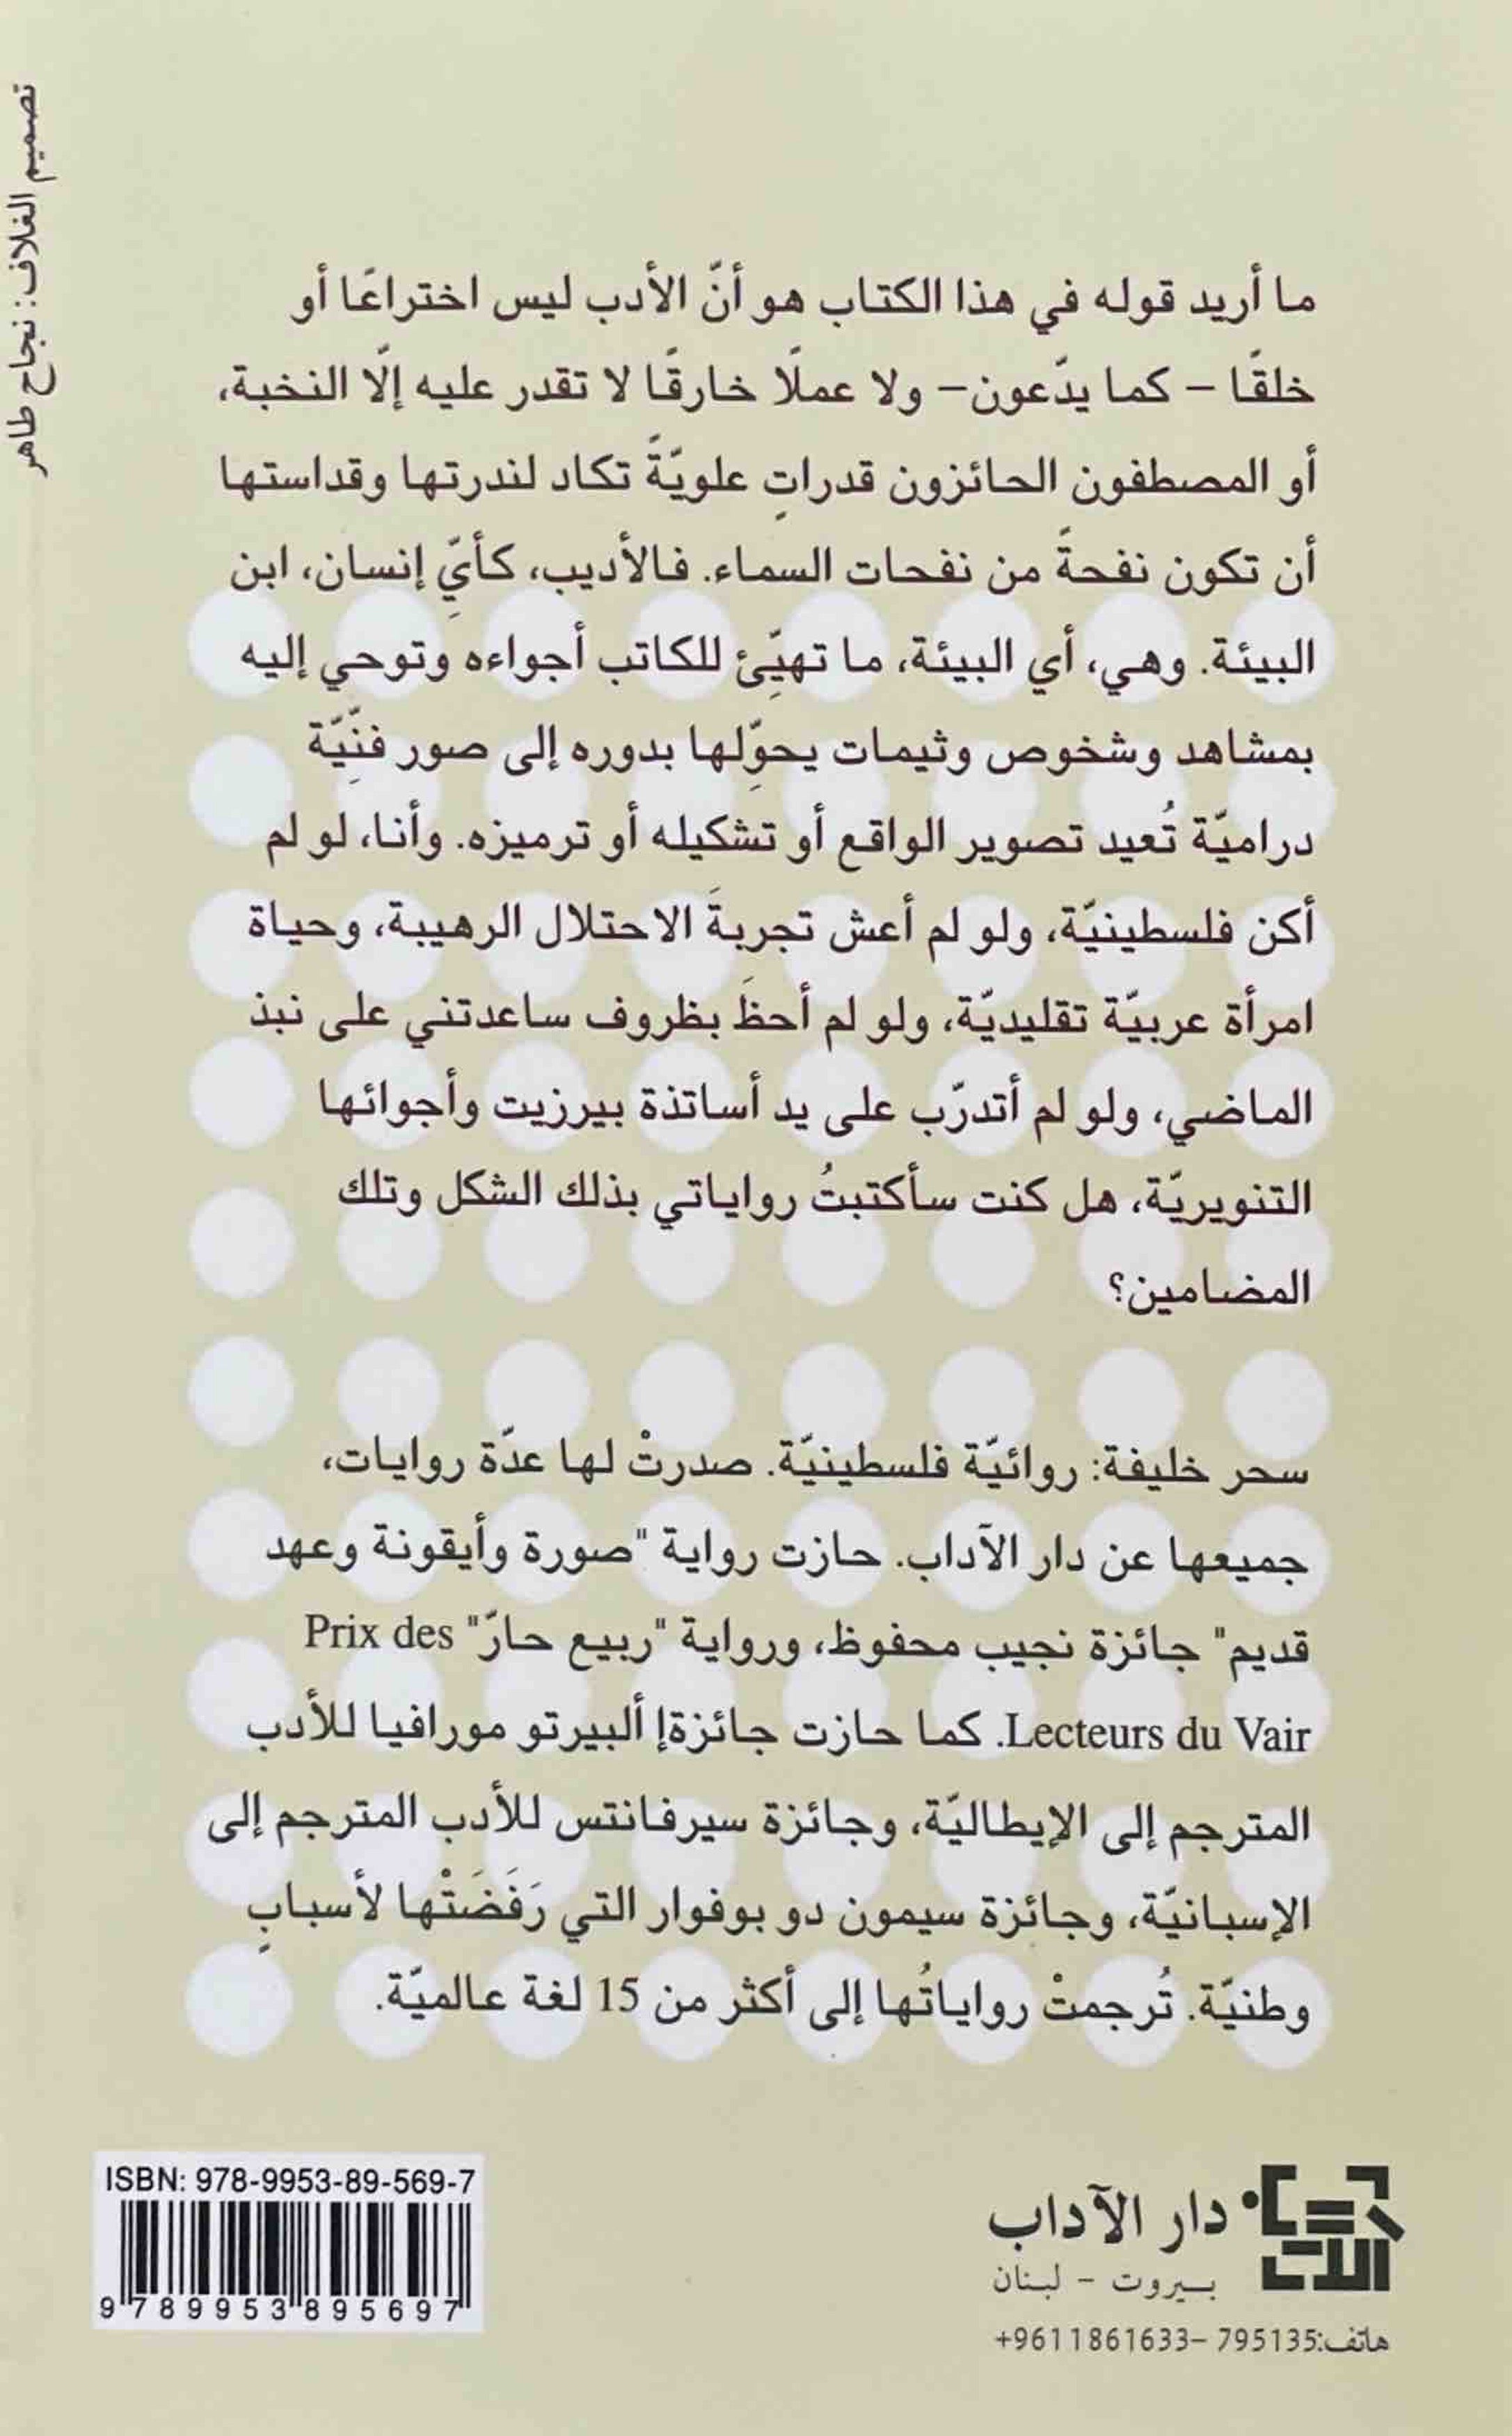 تصميم الغلاف: نجاح طاهر
ما أريد قوله في هذا الكتاب هو أنّ الأدب ليس اختراعًا أو
خلقًا – كما يدّعون– ولا عملًا خارقًا لا تقدر عليه إلّا النخبة،
أو المصطفون الحائزون قدراتٍ علويّةً تكاد لندرتها وقداستها
أن تكون نفحةً من نفحات السماء. فالأديب، كأيِّ إنسان، ابن
البيئة. وهي، أي البيئة، ما تهيِّئ للكاتب أجواءه وتوحي إليه
بمشاهد وشخوص وثيمات يحوِّلها بدوره إلى صور فنِّيّة
دراميّة تُعيد تصوير الواقع أو تشكيله أو ترميزه. وأنا، لو لم
أكن فلسطينيّة، ولو لم أعش تجربةَ الاحتلال الرهيبة، وحياة
امرأة عربيّة تقليديّة، ولو لم أحظَ بظروف ساعدتني على نبذ
الماضي، ولو لم أتدرّب على يد أساتذة بيرزيت وأجوائها
التنويريّة، هل كنت سأكتبتُ رواياتي بذلك الشكل وتلك
المضامين؟
سحر خليفة: روائيّة فلسطينيّة. صدرتْ لها عدّة روايات،
جميعها عن دار الآداب. حازت رواية "صورة وأيقونة وعهد
قديم" جائزة نجيب محفوظ، ورواية "ربيع حارّ" Prix des
Lecteurs du Vair. كما حازت جائزةإ ألبيرتو مورافيا للأدب
المترجم إلى الإيطاليّة، وجائزة سيرفانتس للأدب المترجم إلى
الإسبانيّة، وجائزة سيمون دو بوفوار التي رَفَضَتْها لأسبابٍ
وطنيّة. تُرجمتْ رواياتُها إلى أكثر من 15 لغة عالميّة.
ISBN: 978-9953-89-569-7
9 789953 895697
دار الآداب
بيروت – لبنان
هاتف:795135 –9611861633+